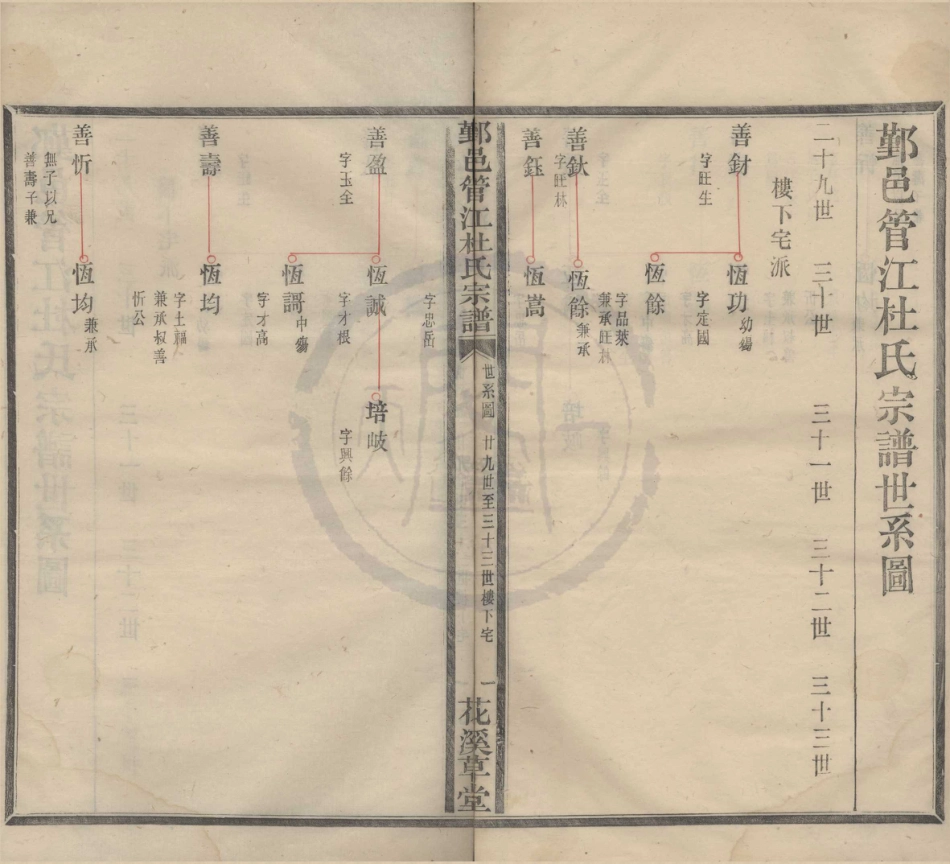 鄞邑管江杜氏宗譜世系圖
二十九世 三十世 三十一世 三十二世 三十三世
樓下宅派
善財
字旺生
恆功
幼殤
字定國
恆餘
善欽
字旺林
恆餘
兼承
字品萊
兼承旺林
善鈺
恆嵩
鄞邑管江杜氏宗譜
世系圖 廿九世至三十三世樓下宅
一
花溪草堂
字忠岳
善盈
字玉全
恆誠
字才根
培岐
字興餘
恆謌
中殤
字才高
善壽
恆均
字士福
兼承叔善
忻公
善忻
無子以兄
善壽子兼
恆均
兼承